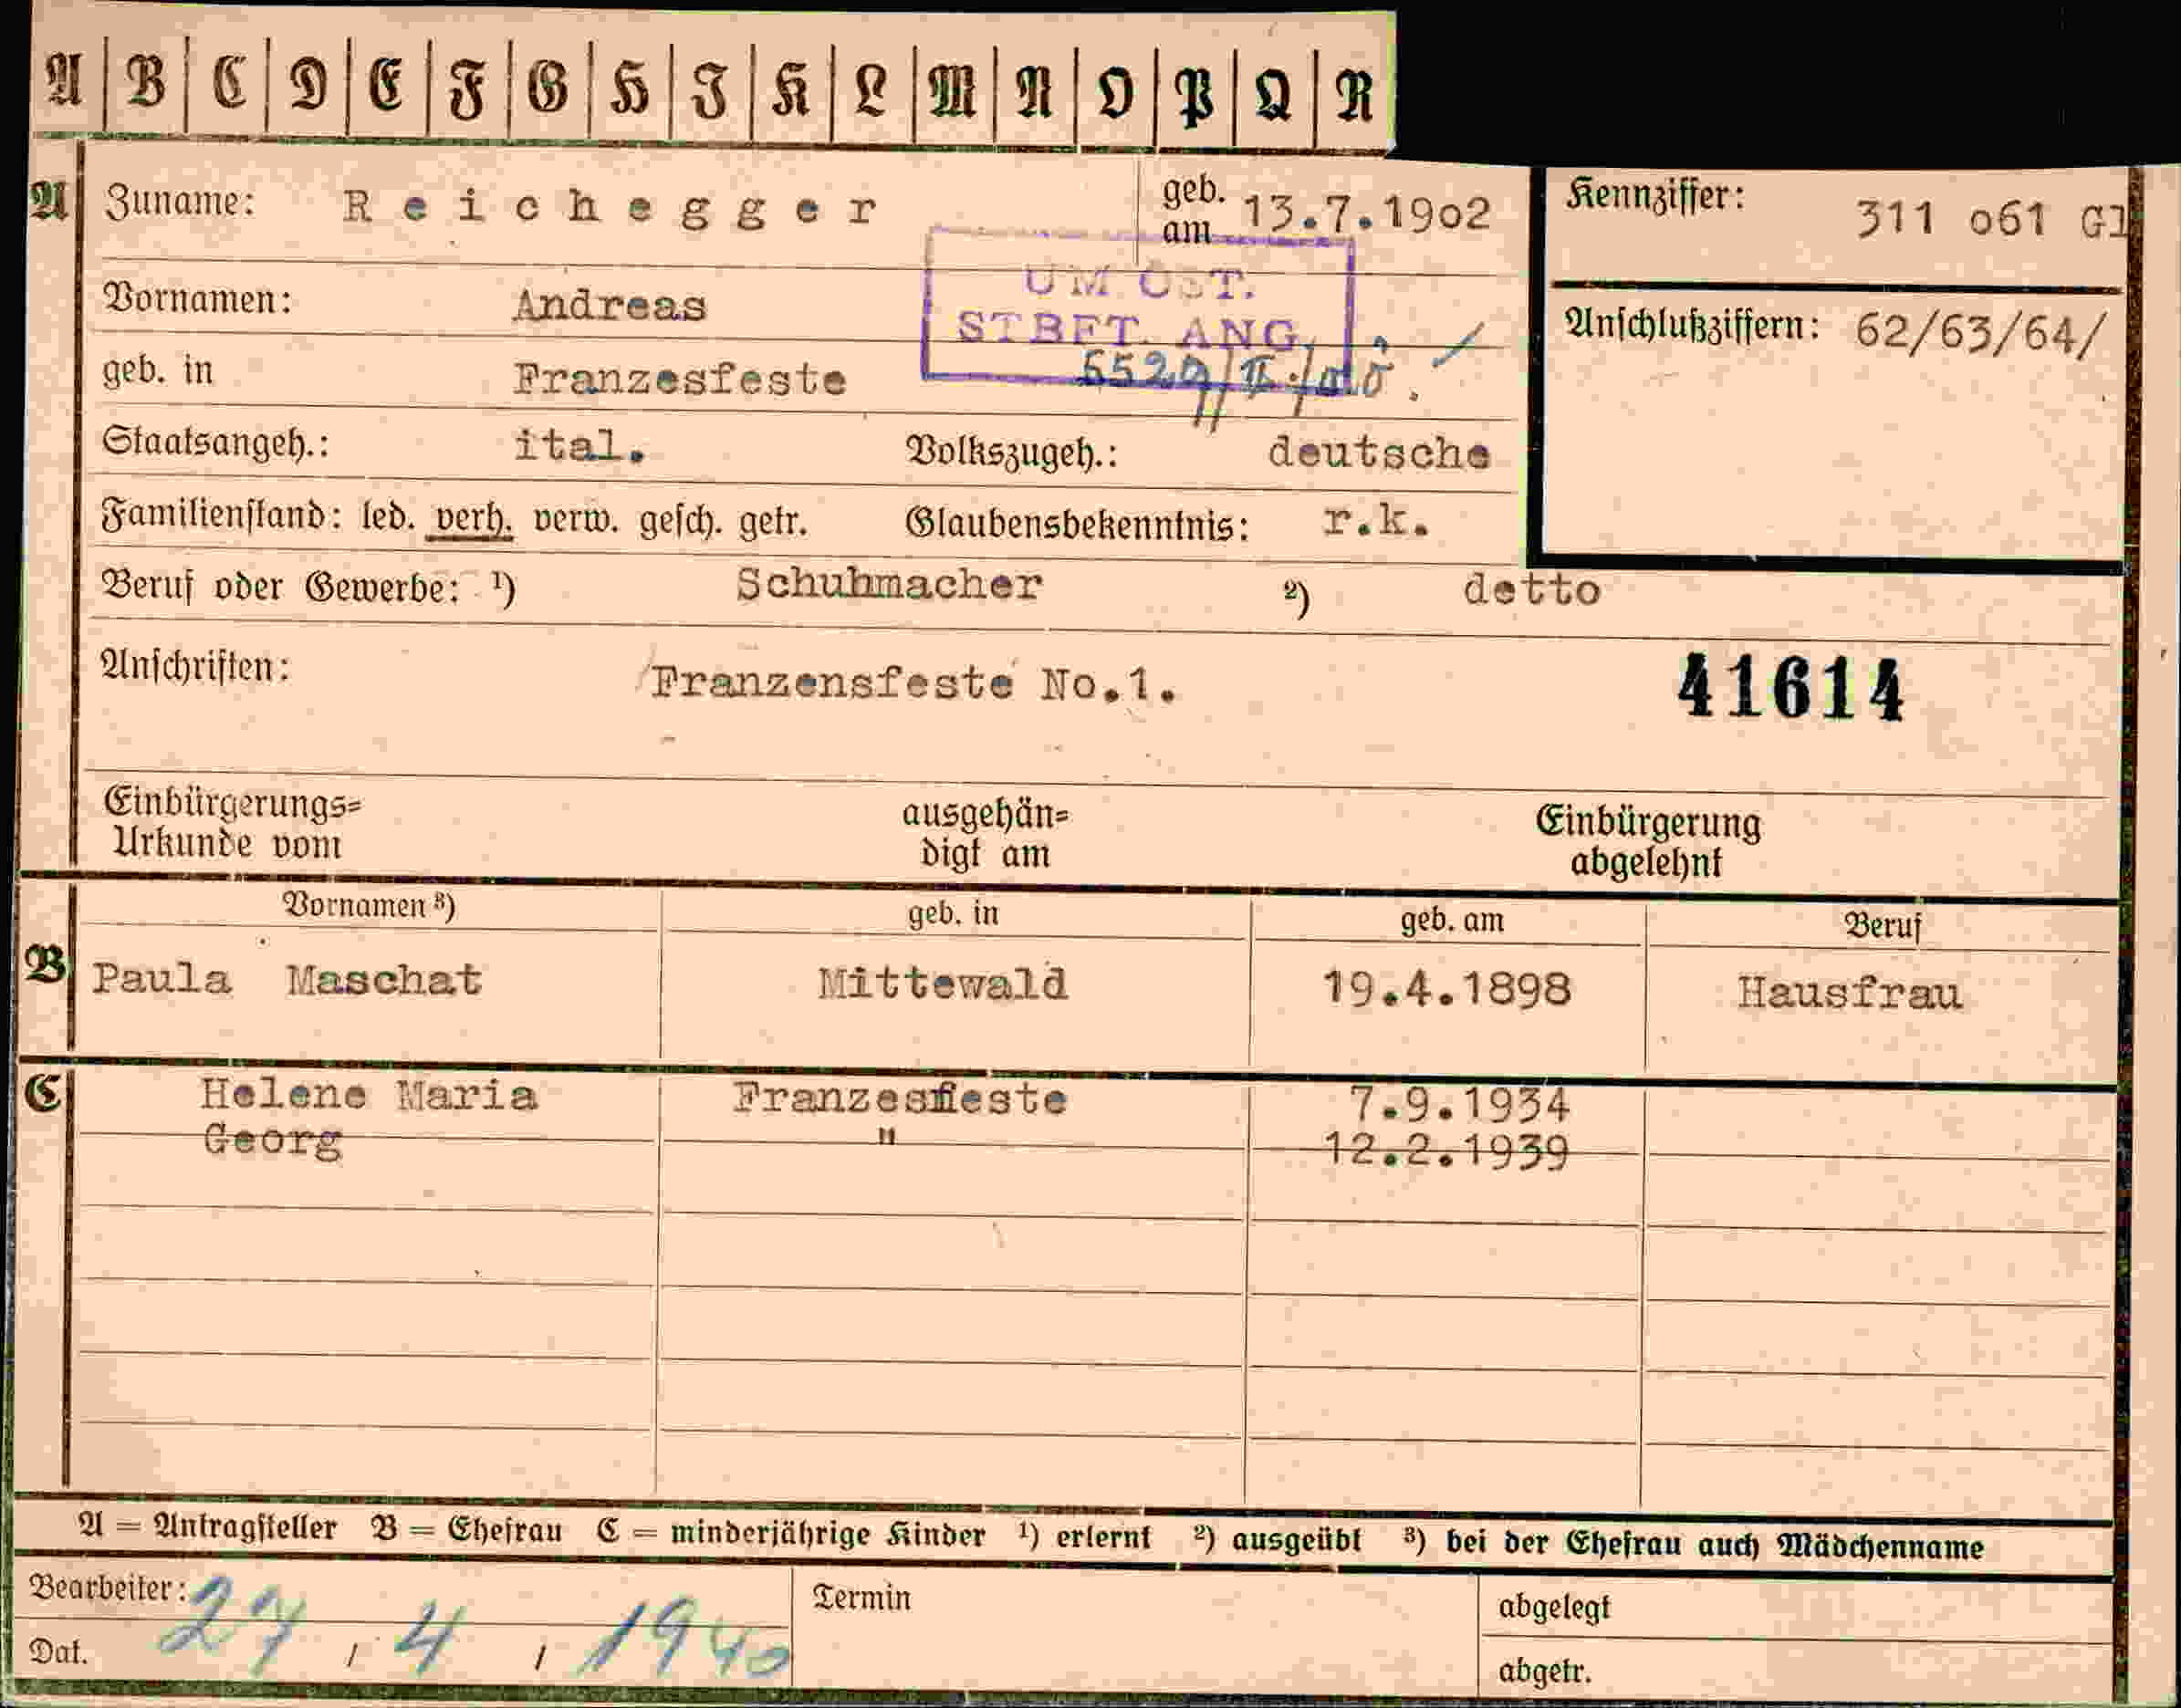 A B C D E F G H I K L M N O P Q R
A Zuname: Reichegger geb. am 13.7.1902 Kennziffer: 311 o61 Gl
UM OST.
Vornamen: Andreas STBFT. ANG. Anschlußziffern: 62/63/64/
geb. in Franzesfeste
Staatsangeh.: ital. Volkszugeh.: deutsche
Familienstand: led. verh. verw. gesch. getr. Glaubensbekenntnis: r.k.
Beruf oder Gewerbe: ¹) Schuhmacher ²) detto
Anschriften: Franzensfeste No.1. 41614
Einbürgerungs= ausgehän= Einbürgerung
Urkunde vom digt am abgelehnt
Vornamen ³) geb. in geb. am Beruf
B Paula Maschat Mittewald 19.4.1898 Hausfrau
C Helene Maria Franzesfieste 7.9.1934
Georg " 12.2.1939
A = Antragsteller B = Ehefrau C = minderjährige Kinder ¹) erlernt ²) ausgeübt ³) bei der Ehefrau auch Mädchenname
Bearbeiter: Termin abgelegt
Dat. 27 / 4 / 1940 abgetr.